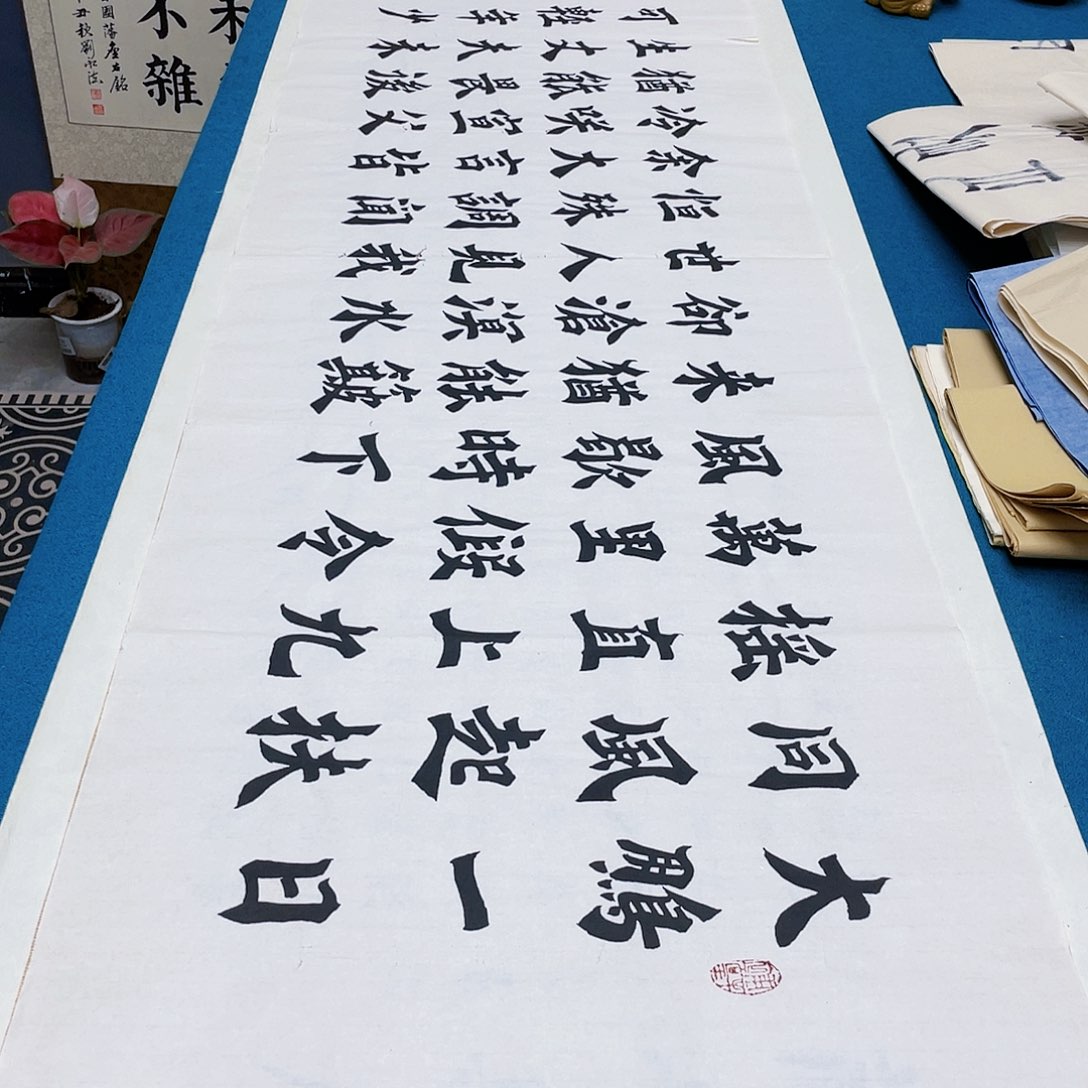 大鵬一日
同風起扶
摇直上九
萬里假令
風歇時下
来猶能簸
卻滄溟水
世人見我
恒殊調闻
余大言皆
冷笑宣父
猶能畏後
生丈夫未
可輕年少
不雜
國藩座右銘